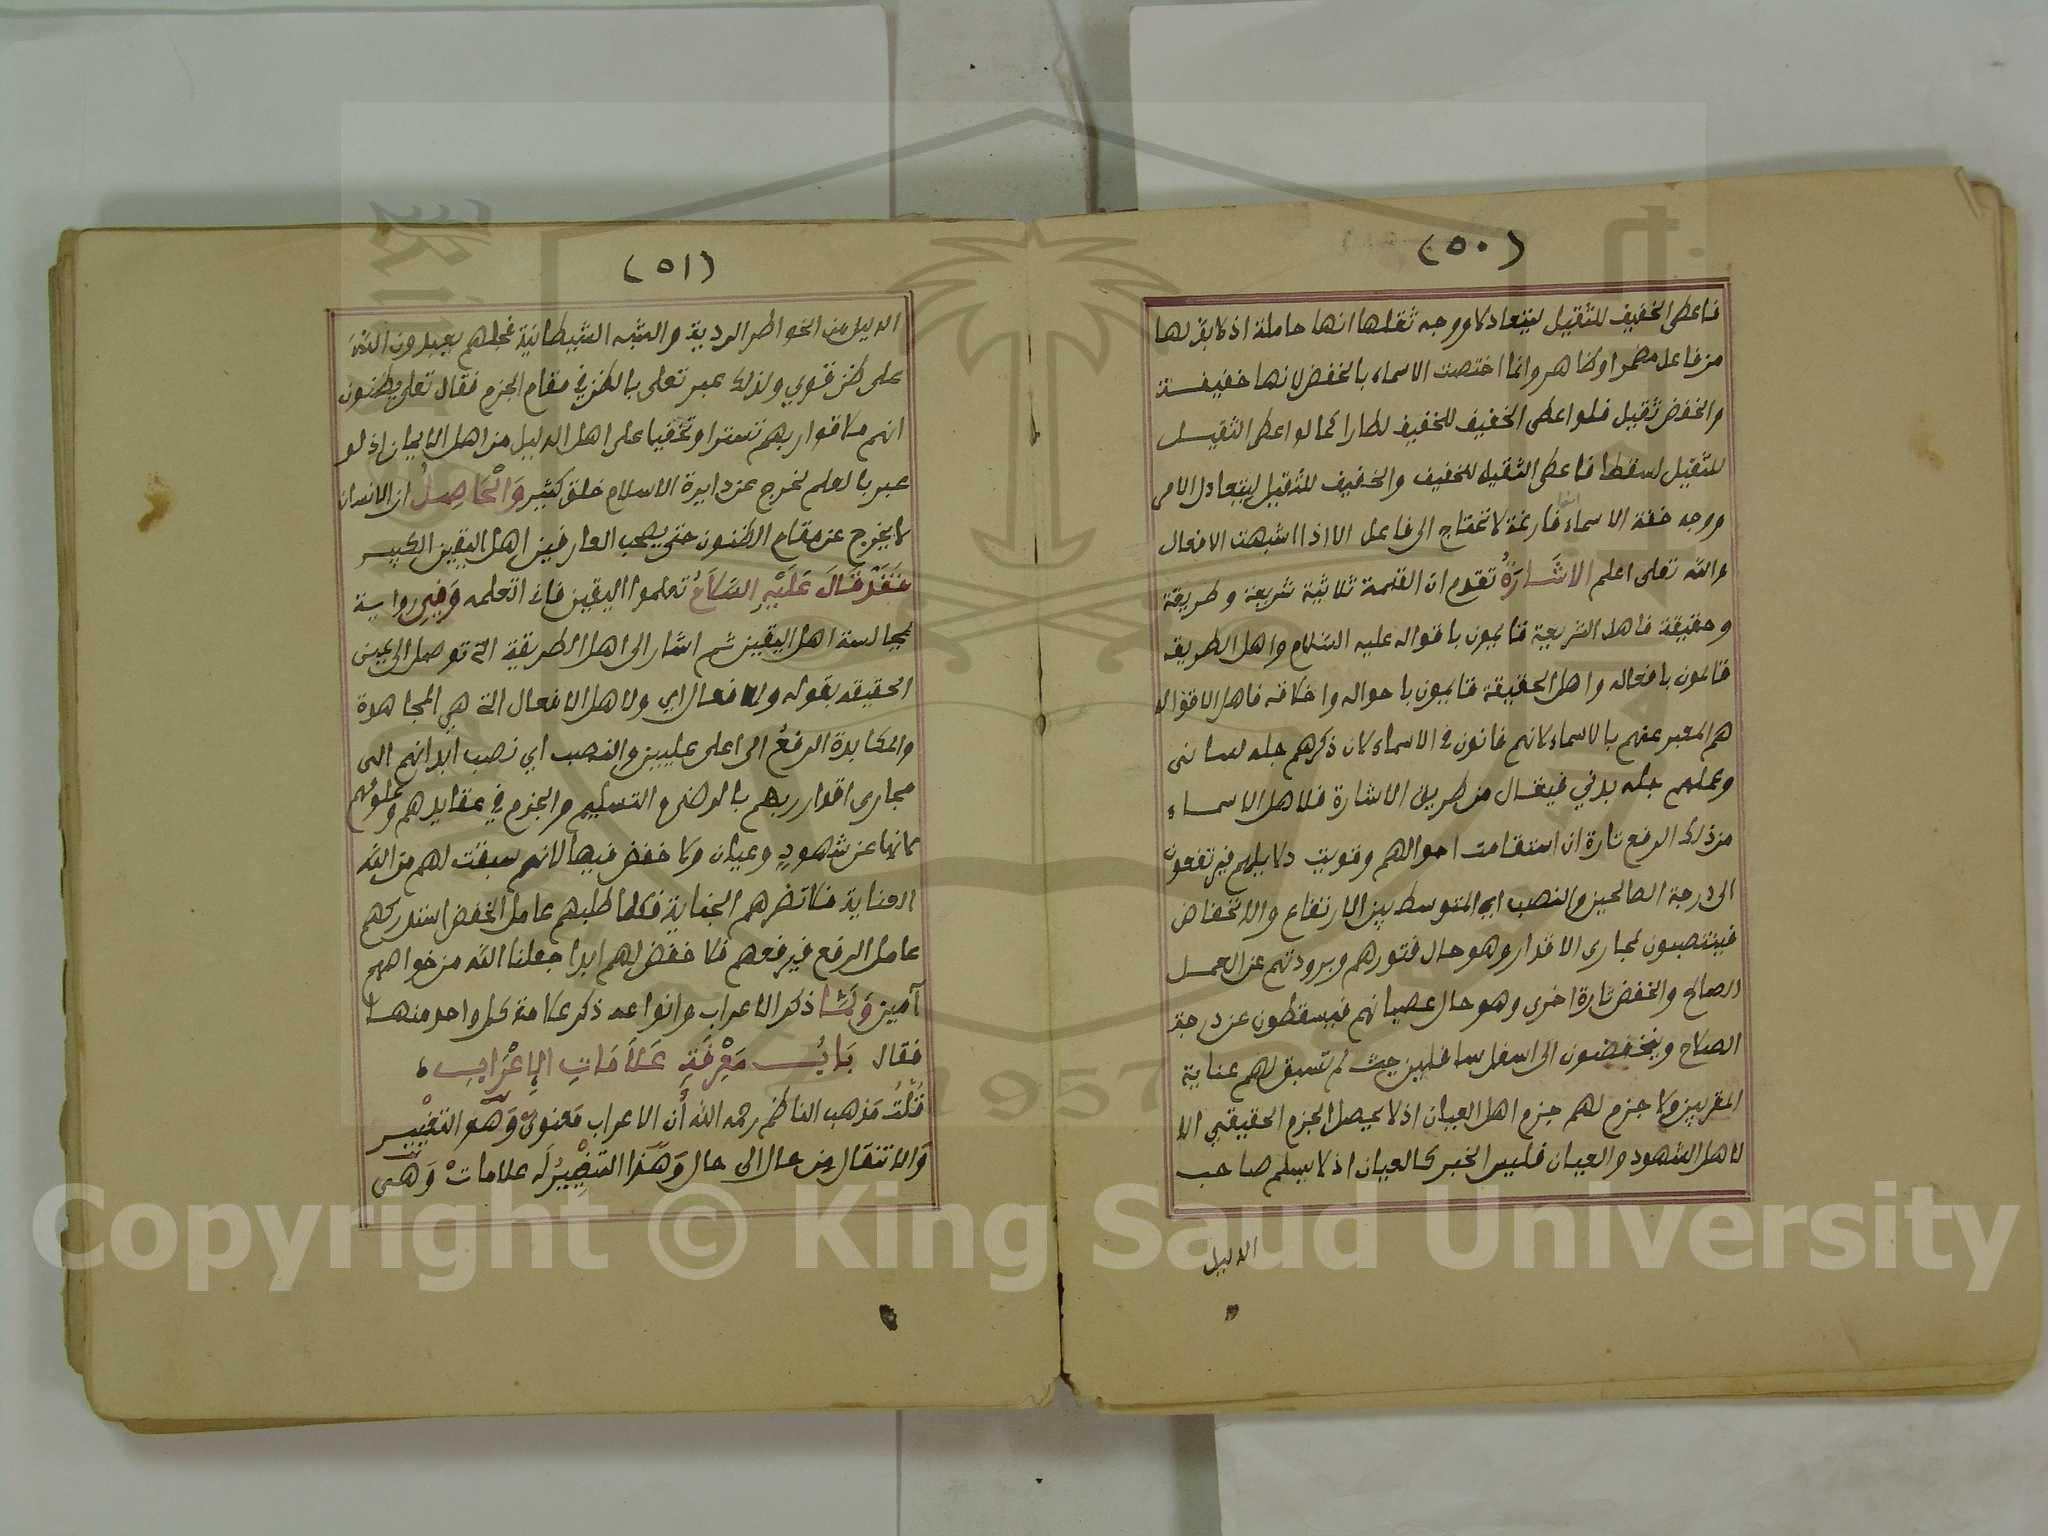 (٥٠)
فاعطى الخفيف للثقيل ليتعادلا ووجه ثقلها انها حاملة اذ لابد لها
من فاعل مضمر او ظاهر وانما اختصت الاسماء بالخفض لانها خفيفة
والخفض ثقيل فلو اعطى الخفيف للخفيف لطارا كما لو اعطى الثقيل
للثقيل لسقطا فاعطى الثقيل للخفيف والخفيف للثقيل ليتعادل الامر
ووجه خفة الاسماء انها فارغة لا تحتاج الى فاعل الا اذا اشبهت الافعال
والله تعلى اعلم الاشَارَةُ تقدم ان القسمة ثلاثية شريعة وطريقة
وحقيقة فاهل الشريعة قايمون باقواله عليه السلام واهل الطريقة
قائمون بافعاله واهل الحقيقة قايمون باحواله واخلاقه فاهل الاقوال
هم المعبر عنهم بالاسماء لانهم فانون في الاسماء لان ذكرهم جله لساني
وعملهم جله بدني فيقال من طريق الاشارة فلاهل الاسماء
من ذلك الرفع تارة ان استقامت احوالهم وقويت دلايلهم فيرتفعون
الى درجة الصالحين والنصب اي المتوسط بين الارتفاع والانخفاض
فينتصبون لمجارى الاقدار وهو حال فتورهم وبرودتهم عن العمل
الصالح والخفض تارة اخرى وهو حال عصيانهم فيسقطون عن درجة
الصلاح وينخفضون الى اسفل سافلين حيث لم تسبق لهم عناية
المقربين ولا جزم لهم جزم اهل العيان اذ لا يحصل الجزم الحقيقي الا
لاهل الشهود والعيان فليس الخبر كالعيان اذ لا يسلم صاحب
الدليل
(٥١)
الدليل من الخواطر الردية والشبه الشيطانية فجلهم يعبدون الله
على ظن قوي ولذلك عبر تعلى بالظن في مقام الجزم فقال تعلى يظنون
انهم ملاقوا ربهم تسترا وتحقيا على اهل الدليل من اهل الايمان اذ لو
عبر بالعلم لخرج عن دايرة الاسلام خلق كثير وَالْحَاصِلُ ان الانسان
لا يخرج عن مقام الظنون حتى يصحب العارفين اهل اليقين الكبير
فَقَدْ قَالَ عَلَيْهِ السَّلَامُ تعلموا اليقين فاني اتعلمه وَفِي رواية
بمجالسة اهل اليقين ثم اشار الى اهل الطريقة التي توصل الى عين
الحقيقه بقوله وللافعال اي ولاهل الافعال التي هي المجاهدة
والمكابدة الرفعُ الى اعلى عليين والنصب اي نصب ابدانهم الى
مجارى اقدار ربهم بالرضى والتسليم والجزم في عقايدهم وعلومهم
لانها عن شهودٍ وعيان ولا خفض فيها لانهم سبقت لهم من الله
العناية فلا تضرهم الجناية فكلما طلبهم عامل الخفض استدركهم
عامل الرفع فيرفعهم فلا خفض لهم ابدا جعلنا الله من خواصهم
آمين وَلَمَّا ذكر الاعراب وانواعه ذكر علامة كل واحد منها
فقال بَابُ مَعْرِفَةِ عَلاَمَاتِ الإِعْرَابِ
قُلْتُ مَذهب الناظم رحمه الله أن الاعراب مَعنويٌ وَهو التغيير
وَالانتقال من حال الى حال وَهَذا التَغْيِيرُ لَه علامَاتْ وَهى
Copyright © King Saud University
1957